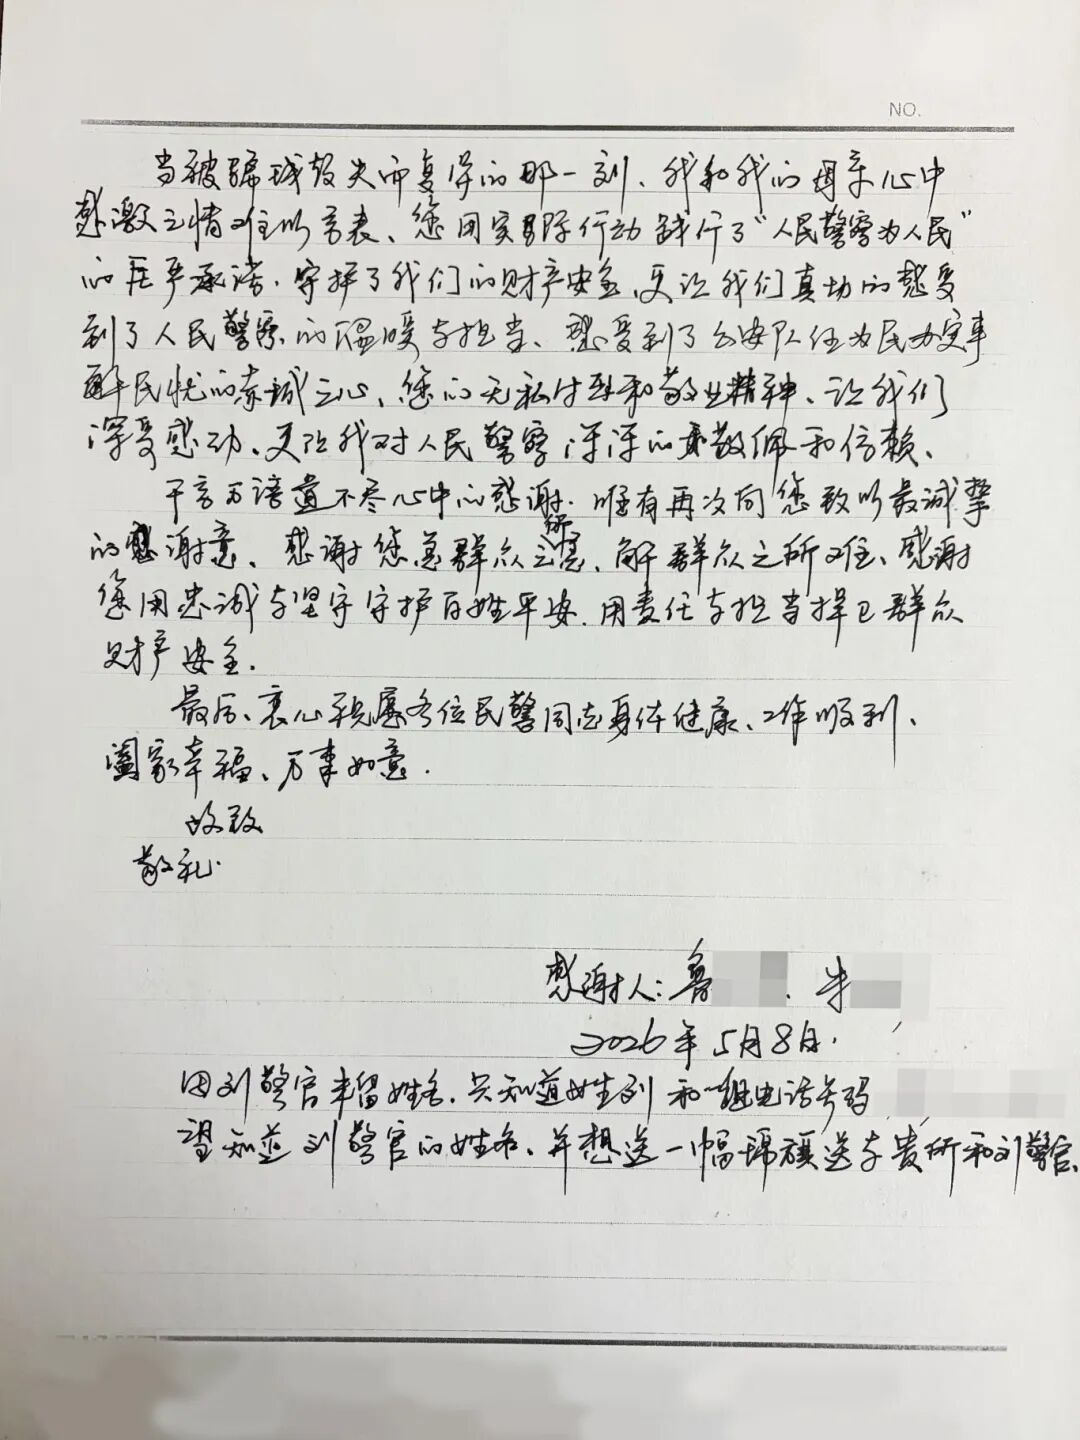 NO.
当被骗钱款失而复得的那一刻、我和我的母亲心中
感激之情难以言表、您用实际行动践行了“人民警察为人民”
的庄严承诺.守护了我们的财产安全、更让我们真切的感受
到了人民警察的温暖与担当、感受到了公安队伍为民办实事
解民忧的赤诚之心、您的无私付出和敬业精神、让我们
深受感动、更让我对人民警察深深的敬佩和信赖、
千言万语道不尽心中的感谢.唯有再次向您致以最诚挚
的谢意、感谢您急群众之所急、解群众之所难、感谢
您用忠诚与坚守守护百姓平安.用责任与担当捍卫群众
财产安全.
最后、衷心祝愿各位民警同志身体健康、工作顺利、
阖家幸福、万事如意.
故致
敬礼
感谢人:鲁 . 朱
2026年5月8日.
因刘警官未留姓名.只知道姓刘和一组电话号码
望知道刘警官的姓名、并想送一幅锦旗送与贵所和刘警官、